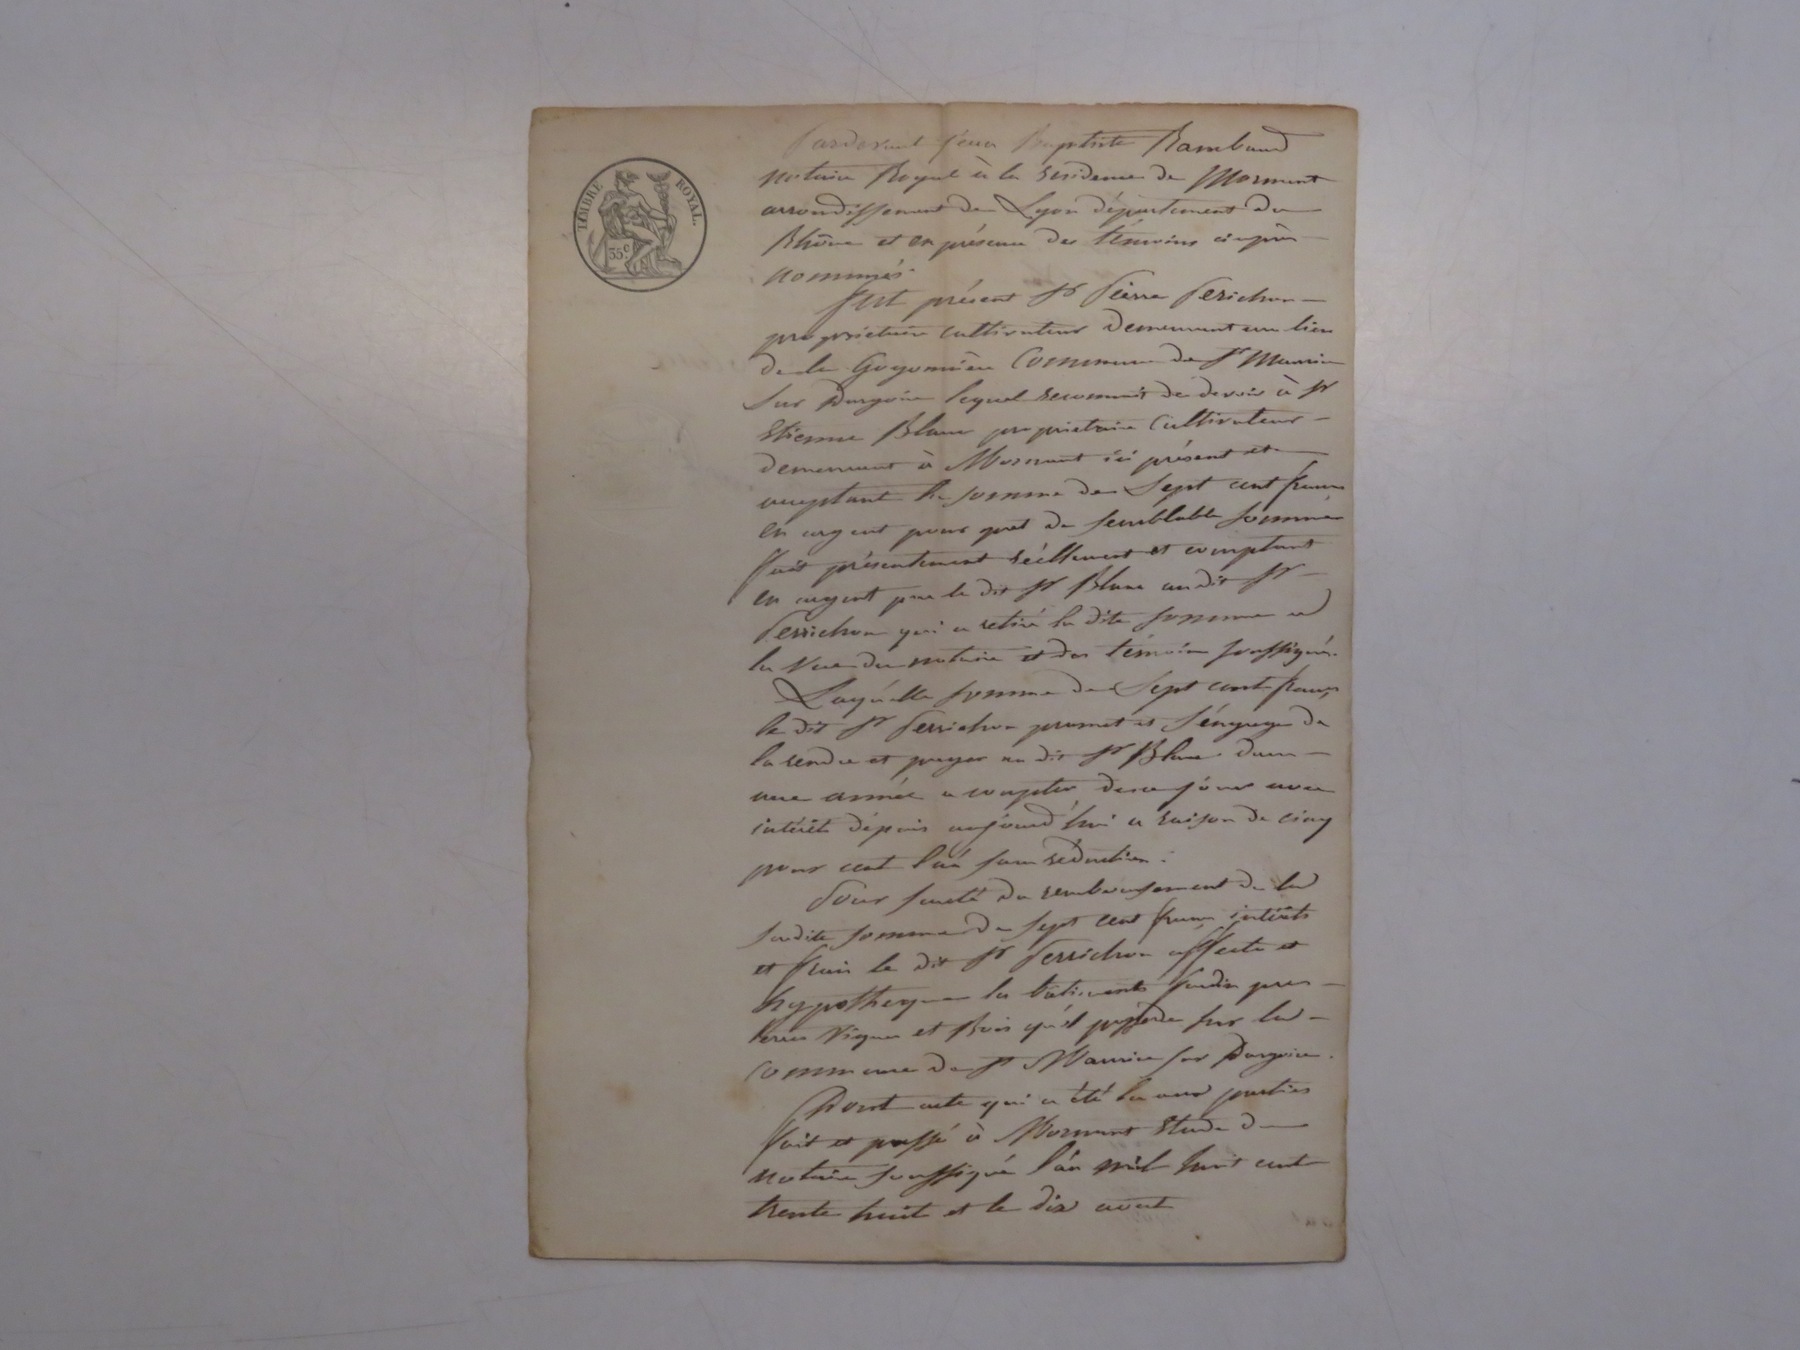 TIMBRE ROYAL
35 c.
Pardevant Jean Baptiste Rambaud
notaire Royal à la résidence de Mornant
arrondissement de Lyon département du
Rhône et en présence des témoins ciaprès
nommés.
Fut présent Sr Pierre Perichon
propriétaire cultivateur demeurant au lieu
de la Goyonnière Commune de St Maurice
sur Dargoire lequel reconnait de devoir à Sr
Etienne Blanc propriétaire Cultivateur
demeurant à Mornant ici présent et
acceptant la somme de Sept cent francs
en argent pour prêt de semblable somme
fait présentement réellement et comptant
en argent par le dit Sr Blanc audit Sr
Perrichon qui a retiré la dite somme a
la vue du notaire et des témoins soussignés.
Laquelle somme de Sept cent francs
le dit Sr Perrichon promet et s'engage de
la rendre et payer au dit Sr Blanc dans
une année a compter de ce jour avec
intérêt dépuis aujourd'hui a raison de cinq
pour cent l'an sans réduction.
Pour sureté du remboursement de la
susdite somme de sept cent francs intérêts
et frais le dit Sr Perrichon affecte et
hypotheque les bâtiments Jardin pres
terres vignes et Bois qu'il possède sur la
commune de St Maurice sur Dargoire.
Dont acte qui a été lu aux parties
fait et passé à Mornant Etude du
notaire soussigné l'an mil huit cent
trente huit et le dix aout